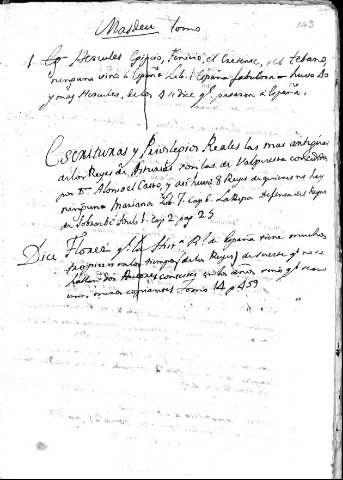 143
Masdeu tomo
1 Hercules Egipcio, Fenicio, el Cretense, el Tebano,
ninguno vino à España Lib. 1 España fabulosa
y mas Hercules, de los q se dice q pasaron a España.
Escrituras y Privilegios Reales las mas antiguas
de los Reyes de Asturias son las de Valpuesta concedida
por Dn Alonso el Casto, y asi huvo 8 Reyes de quienes no hay
ninguna Mariana Lib. 7. Cap 6. La Ripa defensa del Reyno
de Sobrarbe cap 2 pag 25
Dice Florez q la Historia de España tiene muchos
tropiezos en los tiempos de los Reyes, de suerte q no se
hallan dos Autores contestes en los años
unos meros copiantes Tomo 14 p 459